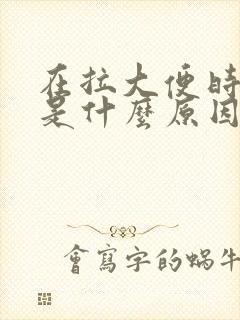 在拉大便時
是什麼原因
會寫字的蝸牛